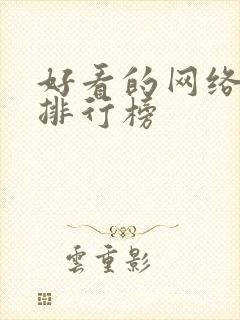 好看的网络
排行榜
雲重影